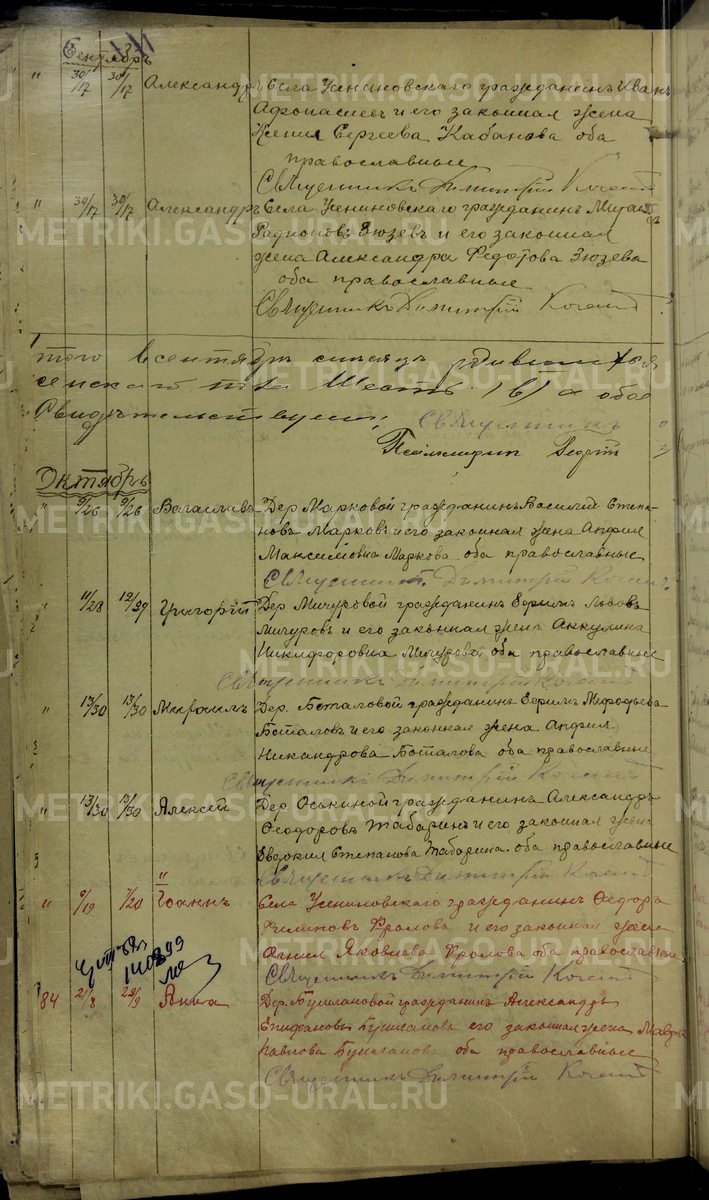 Сентябрь
" 30/17 30/17 Александръ Села Усениновскаго гражданинъ Иванъ
Афонасиевъ и его законная жена
Ксения Сергеева Кабанова оба
православные
Священникъ Димитрій
" 30/17 30/17 Александръ Села Усениновскаго гражданинъ
Радионовъ Зюзевъ и его законная
жена Александра Федотова Зюзева
оба православные
Священникъ Димитрій
того в сентябрѣ месяцѣ
пола Шесть (6) а обоего
Свидѣтельствуетъ: Священникъ
Псаломщикъ
Октябрь
" 9/26 9/26 Вячаславъ Дер Марковой гражданинъ Василий Степа-
новъ Марковъ и его законная жена Анфия
Максимовна Маркова оба православные
Священникъ Димитрій
" 11/28 12/29 Григорій Дер Мичуровой гражданинъ Ефимъ Львовъ
Мичуровъ и его законная жена Аккулина
Никифоровна Мичурова оба православные
Священникъ Димитрій
" 13/30 13/30 Михаилъ Дер. Боталовой гражданинъ Ефимъ Мефодьевъ
Боталовъ и его законная жена Анфия
Никандрова Боталова оба православные
Священникъ Димитрій
" 13/30 13/30 Алексей Дер. Оськиной гражданинъ Александръ
Феодоровъ Табаринъ и его законная жена
Евдокия Степанова Табарина оба православные
Священникъ Димитрій
" Іоаннъ Села Усениновского гражданинъ Федоръ
Филиповъ Фролова и его законная жена
Яковлева Фролова оба православные
Священникъ Димитрій
84 Анна Дер. Бушлановой гражданинъ Александръ
Епифановъ Бушлановъ его законная жена Мавра
Павлова Бушланова оба православные
Священникъ Димитрій
METRIKI.GASO-URAL.RU